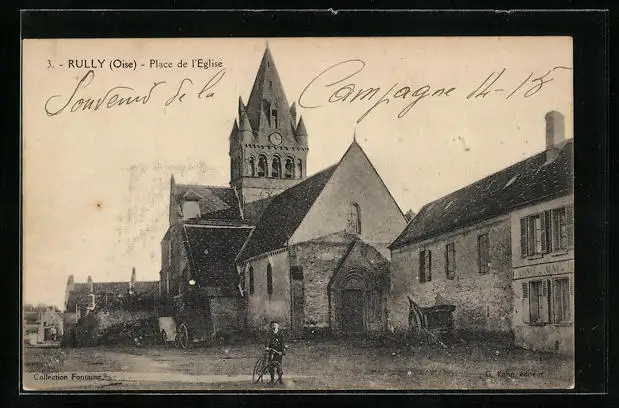 3. - RULLY (Oise) - Place de l'Eglise
Souvenir de la Campagne 14-15
Collection Fontaine
G. Kahn, éditeur